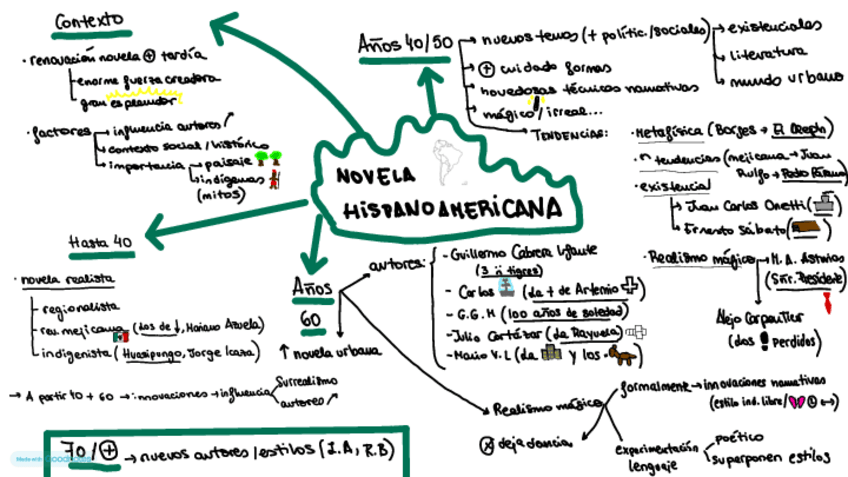 Contexto
· renovación novela ⊕ tardía
enorme fuerza creadora
gran esplendor
· factores → influencia autores
→ contexto social / histórico
→ importancia → paisaje
→ indígenas
(mitos)
Años 40/50
→ nuevos temas (+ polític./sociales)
→ existenciales
→ literatura
→ mundo urbano
→ ⊕ cuidado formas
→ novedosas técnicas narrativas
→ mágico / irreal...
→ TENDENCIAS:
· Metafísica (Borges →
tendencias (mejicana → Juan
Rulfo → Pedro Páramo)
· existencial
→ Juan Carlos Onetti (
→ Ernesto Sábato (
· Realismo mágico → M. A. Asturias
(Sñr. Presidente)
Alejo Carpentier
(los perdidos)
NOVELA
HISPANOAMERICANA
Hasta 40
· novela realista
- regionalista
- rev. mejicana (Los de ↓, Mariano Azuela)
- indigenista (Huasipungo, Jorge Icaza)
→ A partir 40 + 60 → innovaciones → influencia
Surrealismo
autores
Años
60
↑ novela urbana
autores:
- Guillermo Cabrera Infante
(3 tigres)
- Carlos (La + de Artemio
- G. G. M (100 años de soledad)
- Julio Cortázar (La Rayuela)
- Mario V. L (La y los
Realismo mágico
formalmente → innovaciones narrativas
(estilo ind. libre /
experimentación
lenguaje
poético
superponen estilos
70/⊕ → nuevos autores / estilos (I.A, R.B)
Made with Goodnotes